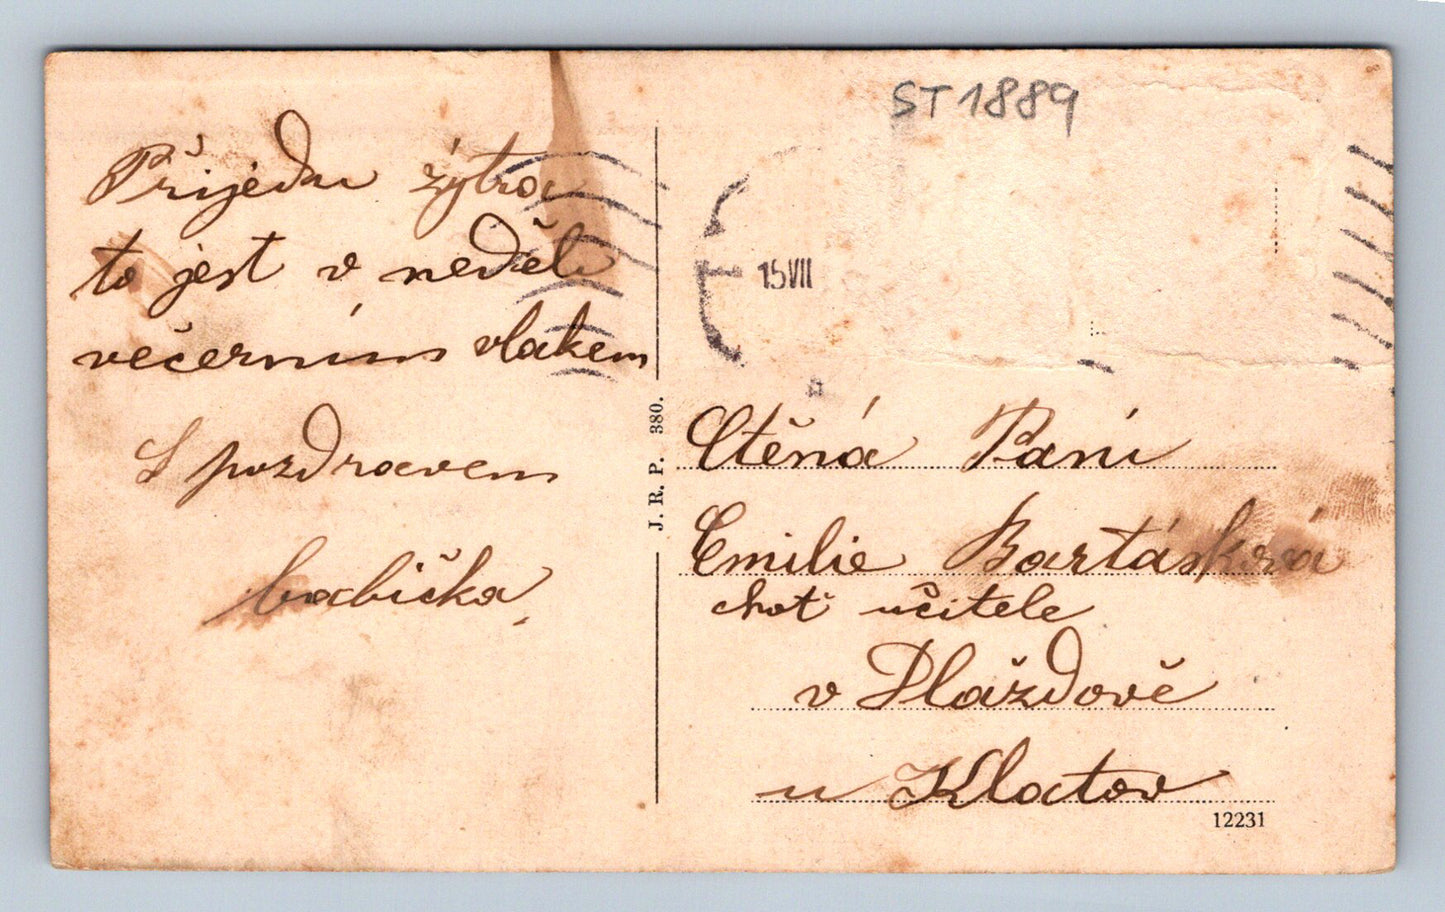 ST 1889
Přijedu zýtra
to jest v neděli
večerním vlakem
S pozdravem
babička.
15 VII
J. R. P. 380.
Ctěná Paní
Emilie Bartásková
choť učitele
v Plážďově
u Klatov
12231